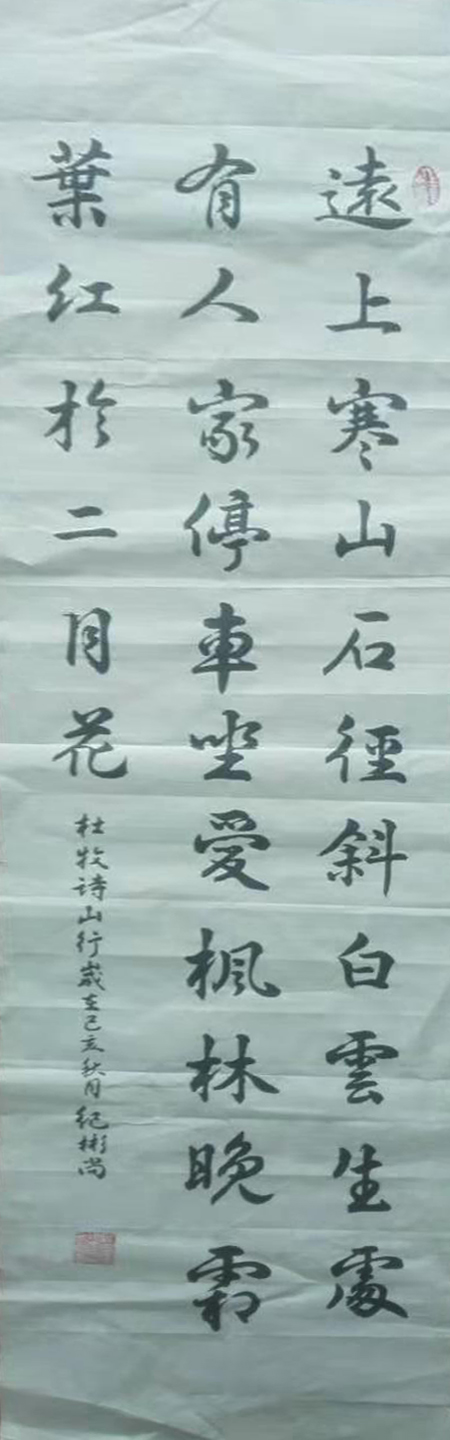 遠上寒山石徑斜白雲生處
有人家停車坐愛楓林晚霜
葉红於二月花
杜牧詩山行歲在己亥秋月纪彬尚